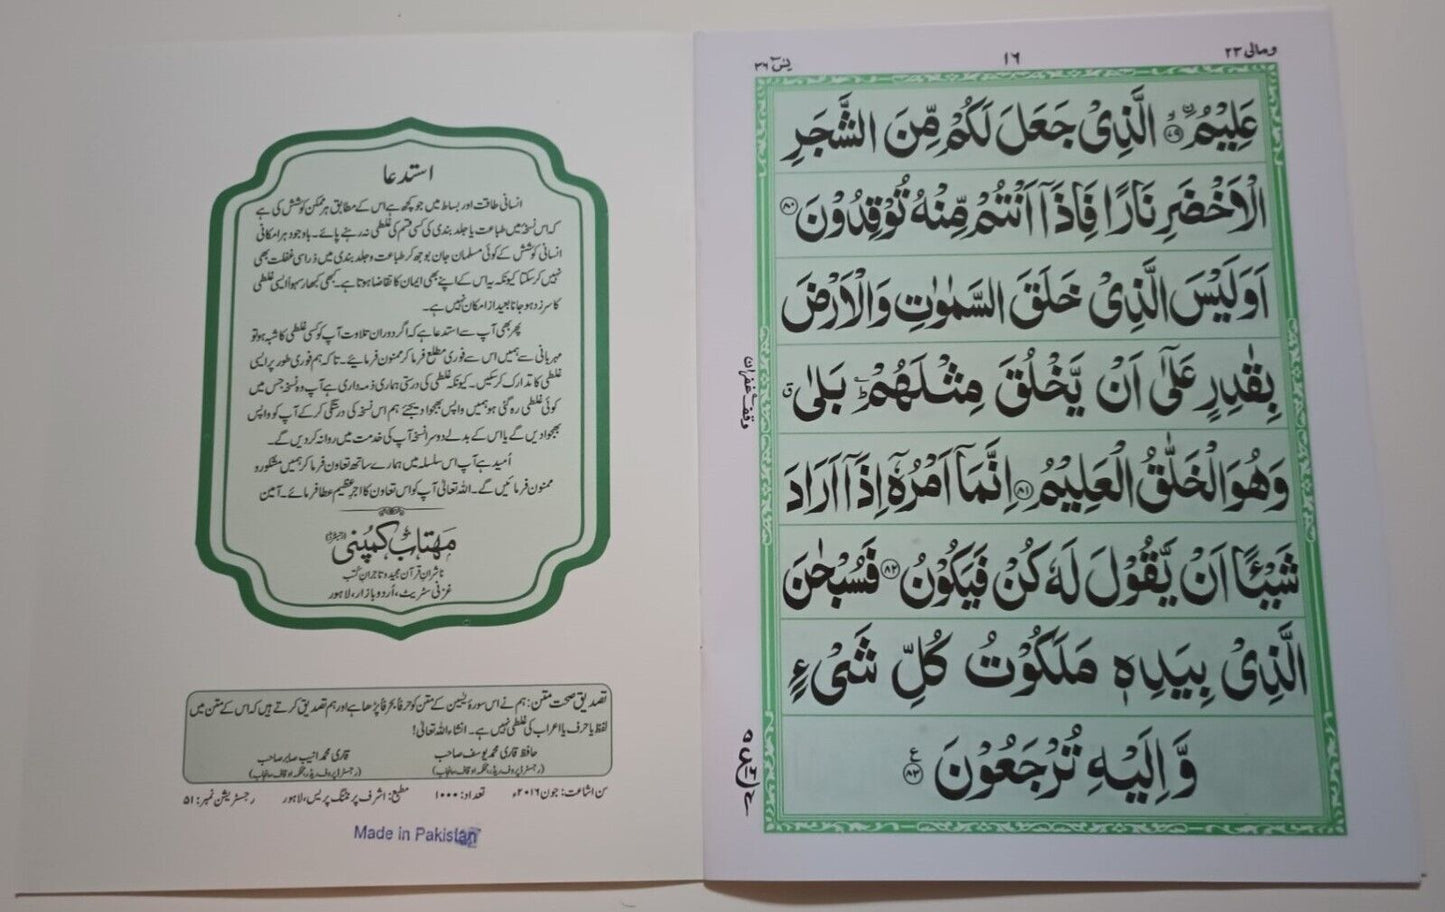 ومالی ۲۳
۱۶
یٰسٓ ۳۶
عَلِيْمُۙ ۝۷۹ الَّذِيْ جَعَلَ لَكُمْ مِّنَ الشَّجَرِ
الْاَخْضَرِ نَارًا فَاِذَاۤ اَنْتُمْ مِّنْهُ تُوْقِدُوْنَ ۝۸۰
اَوَلَيْسَ الَّذِيْ خَلَقَ السَّمٰوٰتِ وَالْاَرْضَ
بِقٰدِرٍ عَلٰۤى اَنْ يَّخْلُقَ مِثْلَهُمْ ؕ بَلٰى ۗ
وَهُوَ الْخَلّٰقُ الْعَلِيْمُ ۝۸۱ اِنَّمَاۤ اَمْرُهٗۤ اِذَاۤ اَرَادَ
شَيْـًٔا اَنْ يَّقُوْلَ لَهٗ كُنْ فَيَكُوْنُ ۝۸۲ فَسُبْحٰنَ
الَّذِيْ بِيَدِهٖ مَلَكُوْتُ كُلِّ شَيْءٍ
وَّ اِلَيْهِ تُرْجَعُوْنَ ۝۸۳ ع
وقف غفران
استدعا
انسانی طاقت اور بساط میں جو کچھ ہے اس کے مطابق ہر ممکن کوشش کی ہے
کہ اس نسخہ میں طباعت یا جلد بندی کی کسی قسم کی غلطی نہ رہنے پائے۔ باوجود ہر امکانی
انسانی کوشش کے کوئی مسلمان جان بوجھ کر طباعت و جلد بندی میں ذرا سی غفلت بھی
نہیں کر سکتا کیونکہ یہ اس کے اپنے بھی ایمان کا تقاضا ہوتا ہے۔ کبھی کبھار سہواً ایسی غلطی
کا سرزد ہو جانا بعید از امکان نہیں ہے۔
پھر بھی آپ سے استدعا ہے کہ اگر دوران تلاوت آپ کو کسی غلطی کا شبہ ہو تو
مہربانی سے ہمیں اس سے فوری مطلع فرما کر ممنون فرمائیے۔ تاکہ ہم فوری طور پر ایسی
غلطی کا تدارک کر سکیں۔ کیونکہ غلطی کی درستی ہماری ذمہ داری ہے آپ وہ نسخہ جس میں
کوئی غلطی رہ گئی ہو ہمیں واپس بھجوا دیجئے ہم اس نسخہ کی درستگی کر کے آپ کو واپس
بھجوا دیں گے یا اس کے بدلے دوسرا نسخہ آپ کی خدمت میں روانہ کر دیں گے۔
اُمید ہے آپ اس سلسلہ میں ہمارے ساتھ تعاون فرما کر ہمیں مشکور و
ممنون فرمائیں گے۔ اللہ تعالیٰ آپ کو اس تعاون کا اجرِ عظیم عطا فرمائے۔ آمین
مہتاب کمپنی (رجسٹرڈ)
ناشرانِ قرآن مجید و تاجرانِ کتب
غزنی سٹریٹ، اُردو بازار، لاہور
تصدیق صحت متن: ہم نے اس سورۂ یٰسین کے متن کو حرفاً بحرفاً پڑھا ہے اور ہم تصدیق کرتے ہیں کہ اس کے متن میں
لفظ یا حرف یا اعراب کی غلطی نہیں ہے۔ انشاء اللہ تعالیٰ!
حافظ قاری محمد یوسف صاحب
قاری محمد انیب صابر صاحب
(رجسٹرڈ پروف ریڈر، محکمہ اوقاف پنجاب)
(رجسٹرڈ پروف ریڈر، محکمہ اوقاف پنجاب)
سن اشاعت: جون ۲۰۱۶ء تعداد: ۱۰۰۰ مطبع: اشرف پرنٹنگ پریس، لاہور رجسٹریشن نمبر: ۵۱
Made in Pakistan